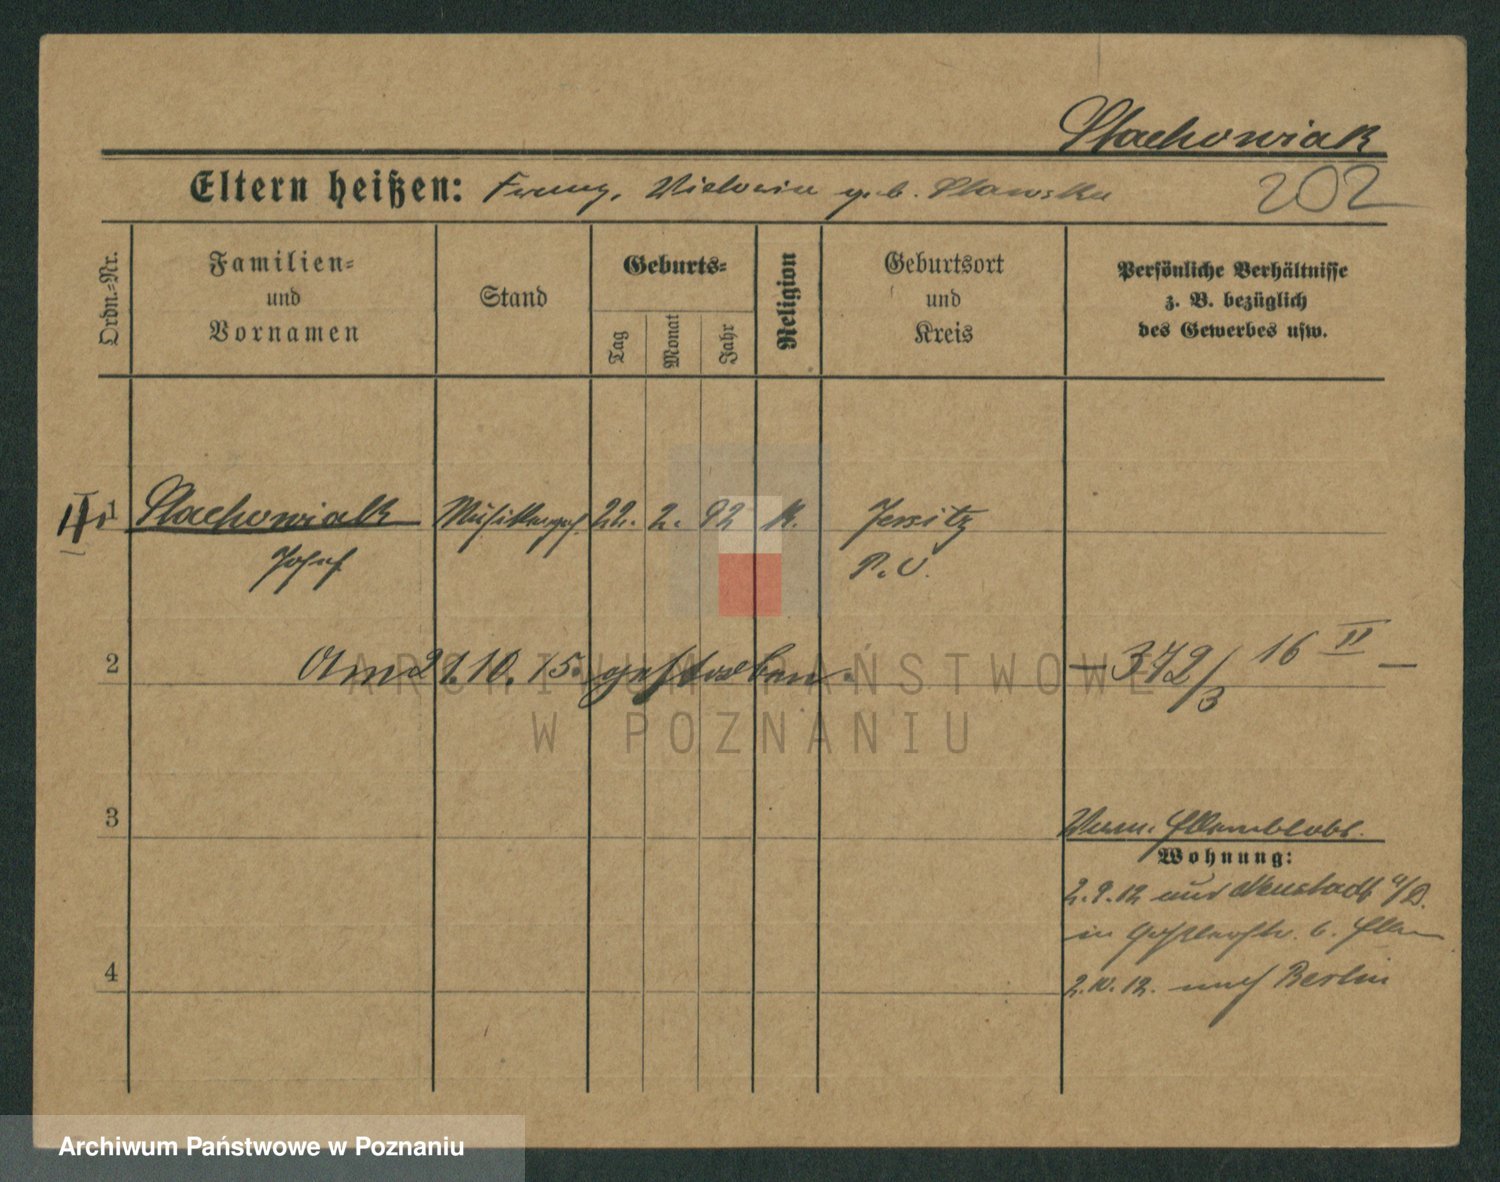 Stachowiak
Eltern heißen: Franz, Victoria geb. Stawska
202
Ordn.-Nr.
Familien-
und
Vornamen
Stand
Geburts-
Tag
Monat
Jahr
Religion
Geburtsort
und
Kreis
Persönliche Verhältnisse
z. B. bezüglich
des Gewerbes usw.
II
1 Stachowiak 22. 2. 92 K. Jersitz
Josef P. O.
2 Am 21.10.15. gestorben. — 372/3 16 II —
3
Wohnung:
2.9.12 aus Neustadt
in b.
4
2.10.12. nach Berlin
ARCHIWUM PAŃSTWOWE
W POZNANIU
Archiwum Państwowe w Poznaniu